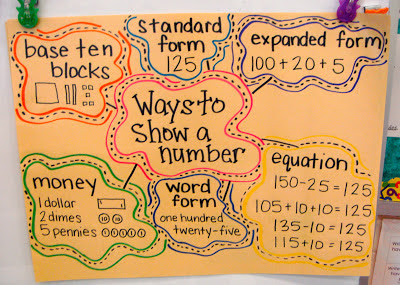 base ten
blocks
standard
form
125
expanded form
100+20+5
Ways to
Show a
number
money
1 dollar
2 dimes
10 10
5 pennies
1 1 1 1 1
word
form
one hundred
twenty-five
equation
150-25=125
105+10+10=125
135-10=125
115+10=125